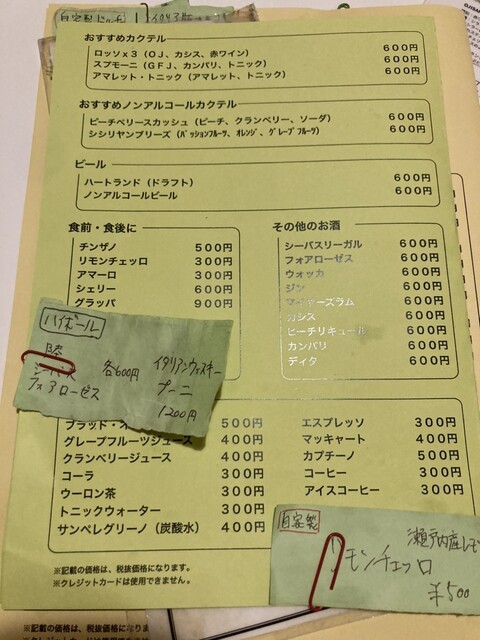 おすすめカクテル
ロッソx3（OJ、カシス、赤ワイン） 600円
スプモーニ（GFJ、カンパリ、トニック） 600円
アマレット・トニック（アマレット、トニック） 600円
おすすめノンアルコールカクテル
ピーチベリースカッシュ（ピーチ、クランベリー、ソーダ） 600円
シシリヤンブリーズ（パッションフルーツ、オレンジ、グレープフルーツ） 600円
ビール
ハートランド（ドラフト） 600円
ノンアルコールビール 600円
食前・食後に
チンザノ 500円
リモンチェッロ 300円
アマーロ 300円
シェリー 600円
グラッパ 900円
その他のお酒
シーバスリーガル 600円
フォアローゼス 600円
ウォッカ 600円
ジン 600円
マイヤーズラム 600円
カシス 600円
ピーチリキュール 600円
カンパリ 600円
ディタ 600円
ハイボール
フォアローゼス
各600円
イタリアンウィスキー
プーニ
1200円
ブラッド・オ 500円
グレープフルーツジュース 400円
クランベリージュース 400円
コーラ 300円
ウーロン茶 300円
トニックウォーター 300円
サンペレグリーノ（炭酸水） 400円
エスプレッソ 300円
マッキャート 400円
カプチーノ 500円
コーヒー 300円
アイスコーヒー 300円
自家製
瀬戸内産レモ
リモンチェッロ
¥500
※記載の価格は、税抜価格になります。
※クレジットカードは使用できません。
※記載の価格は、税抜価格になりま